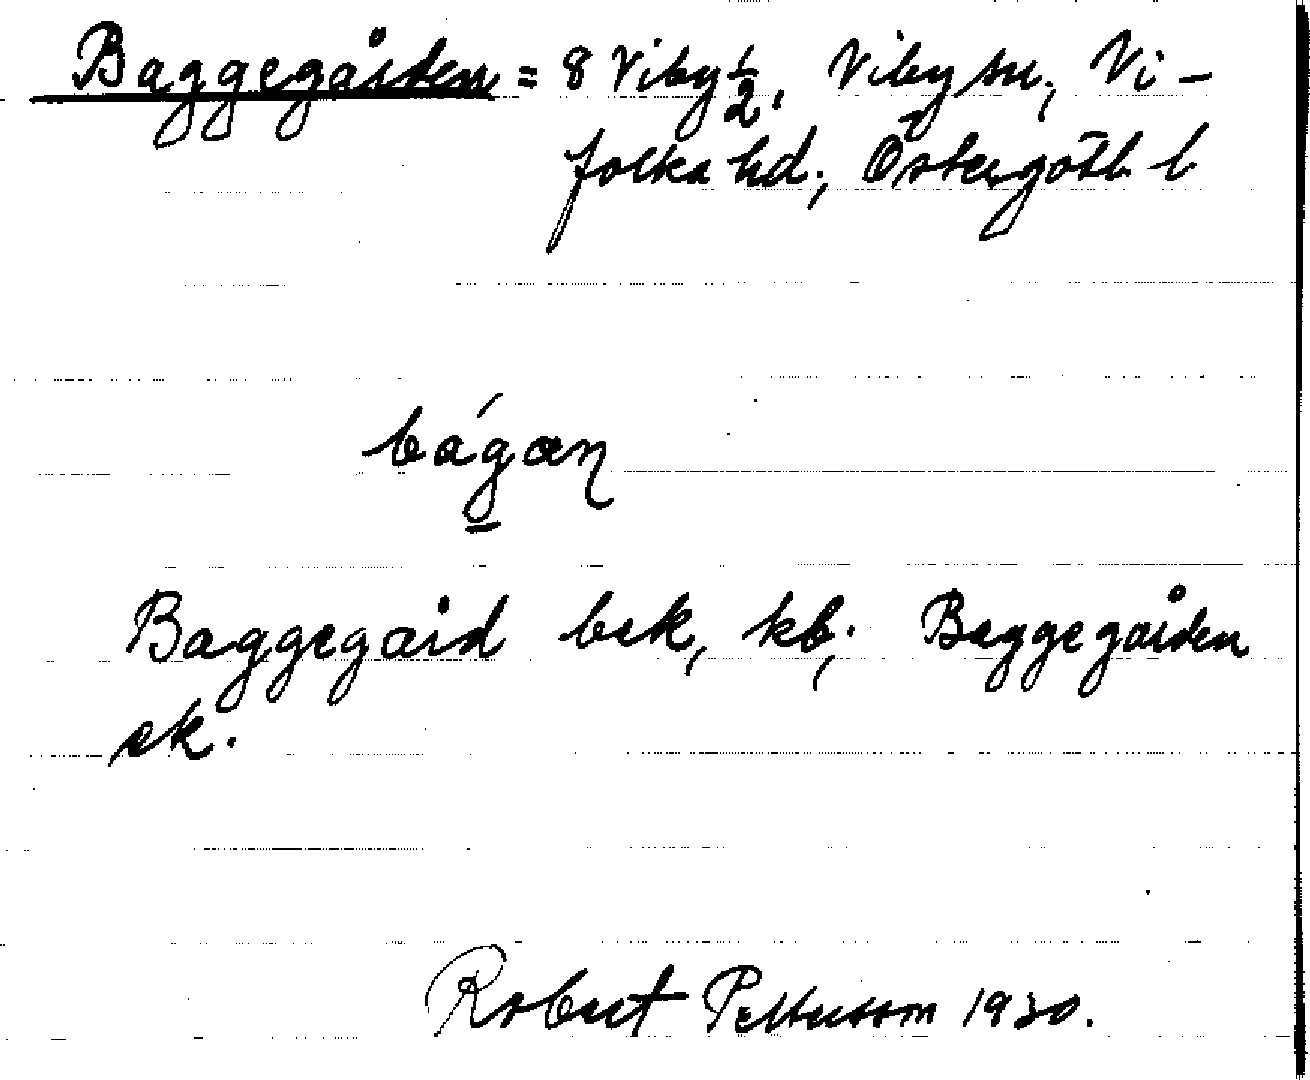 Baggegården = 8 Viby ½, Viby sn, Vi-
folka hd, Östergötl. l
bágan
Baggegård bek, kb; Baggegården
ek.
Robert Pettersson 1930.